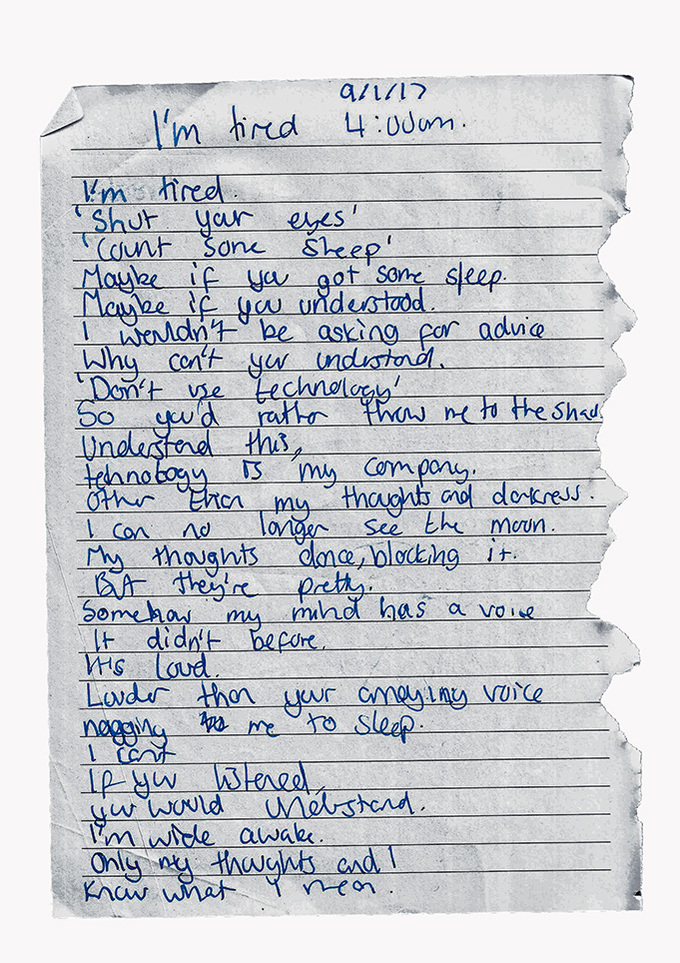 9/1/17
I'm tired 4:00am.
I'm tired.
'Shut your eyes'
'Count some sheep'
Maybe if you got some sleep.
Maybe if you understood.
I wouldn't be asking for advice
Why can't you understand.
'Don't use technology'
So you'd rather throw me to the shad
Understand this,
technology is my company.
Other than my thoughts and darkness.
I can no longer see the moon.
My thoughts dance, blocking it.
But they're pretty.
Somehow my mind has a voice
It didn't before.
It's loud.
Louder than your annoying voice
nagging me to sleep.
I can't
If you listened,
you would understand.
I'm wide awake.
Only my thoughts and I
know what I mean.